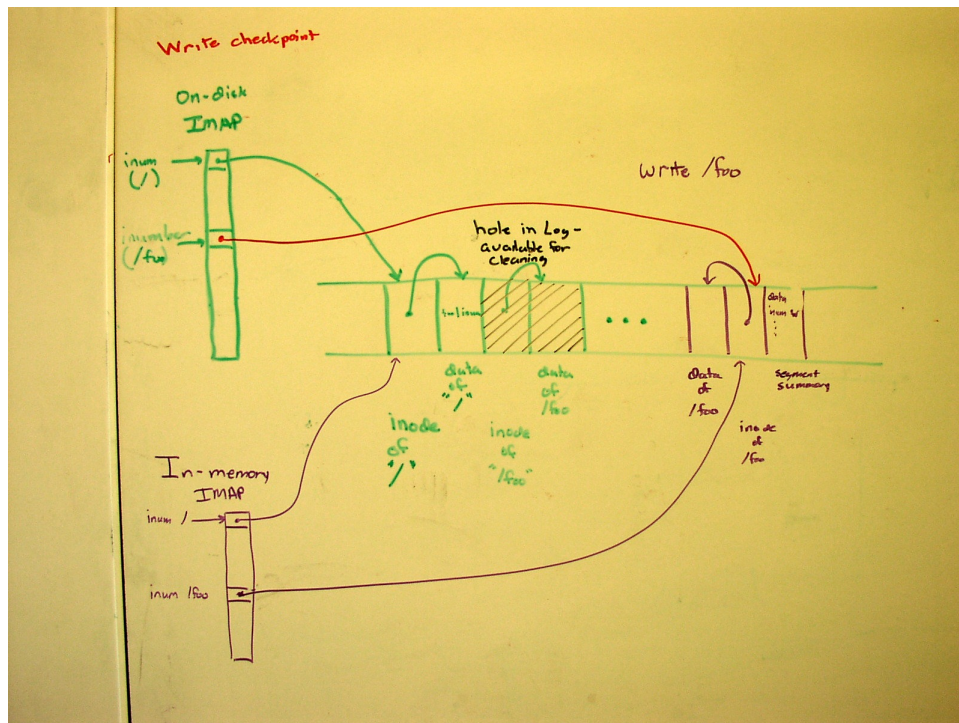 Write checkpoint
On-disk
IMAP
inum
(/)
inumber
(/foo)
Write /foo
hole in Log-
available for
cleaning
data
inum &
...
data
of
"/"
data
of
/foo
data
of
/foo
segment
summary
inode
of
"/"
inode
of
"/foo"
inode
of
/foo
In-memory
IMAP
inum /
inum /foo